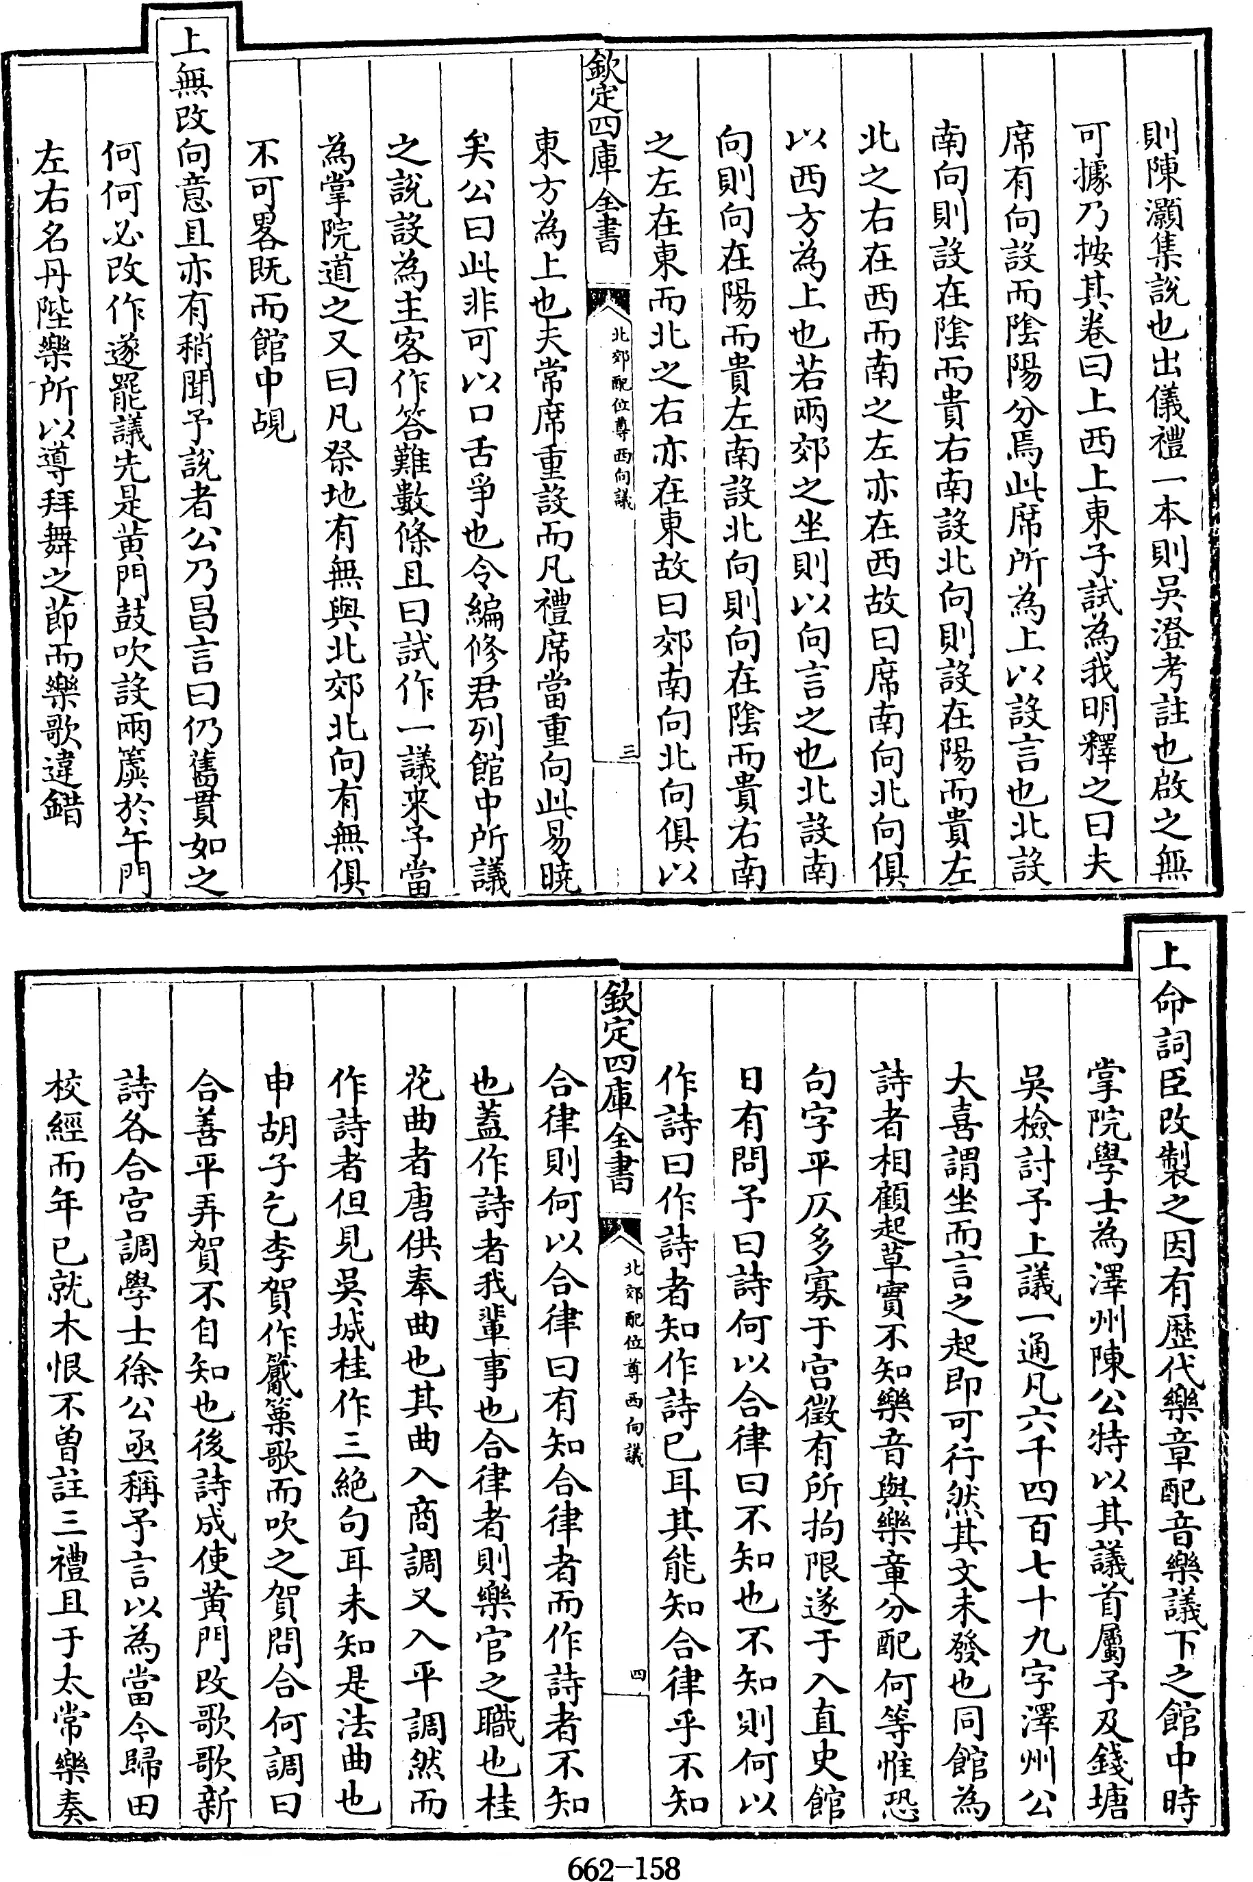 則陳灝集說也出儀禮一本則吳澄考註也啟之無
可據乃按其卷曰上西上東子試為我明釋之曰夫
席有向設而陰陽分焉此席所為上以設言也北設
南向則設在陰而貴右南設北向則設在陽而貴左
北之右在西而南之左亦在西故曰席南向北向俱
以西方為上也若兩郊之坐則以向言之也北設南
向則向在陽而貴左南設北向則向在陰而貴右南
之左在東而北之右亦在東故曰郊南向北向俱以
欽定四庫全書
北郊配位尊西向議
三
東方為上也夫常席重設而凡禮席當重向此易曉
矣公曰此非可以口舌爭也令編修君列館中所議
之說設為主客作答難數條且曰試作一議來予當
為掌院道之又曰凡祭地有無與北郊北向有無俱
不可畧既而館中覘
上無改向意且亦有稍聞予說者公乃昌言曰仍舊貫如之
何何必改作遂罷議先是黃門鼓吹設兩簴於午門
左右名丹陛樂所以導拜舞之節而樂歌違錯
上命詞臣改製之因有歷代樂章配音樂議下之館中時
掌院學士為澤州陳公特以其議首屬予及錢塘
吳檢討予上議一通凡六千四百七十九字澤州公
大喜謂坐而言之起即可行然其文未發也同館為
詩者相顧起草實不知樂音與樂章分配何等惟恐
句字平仄多寡于宮徵有所拘限遂于入直史館
日有問予曰詩何以合律曰不知也不知則何以
作詩曰作詩者知作詩已耳其能知合律乎不知
欽定四庫全書
北郊配位尊西向議
四
合律則何以合律曰有知合律者而作詩者不知
也蓋作詩者我輩事也合律者則樂官之職也桂
花曲者唐供奉曲也其曲入商調又入平調然而
作詩者但見吳城桂作三絶句耳未知是法曲也
申胡子乞李賀作觱篥歌而吹之賀問合何調曰
合善平弄賀不自知也後詩成使黃門改歌歌新
詩各合宮調學士徐公亟稱予言以為當今歸田
校經而年已就木恨不曾註三禮且于太常樂奏
662-158